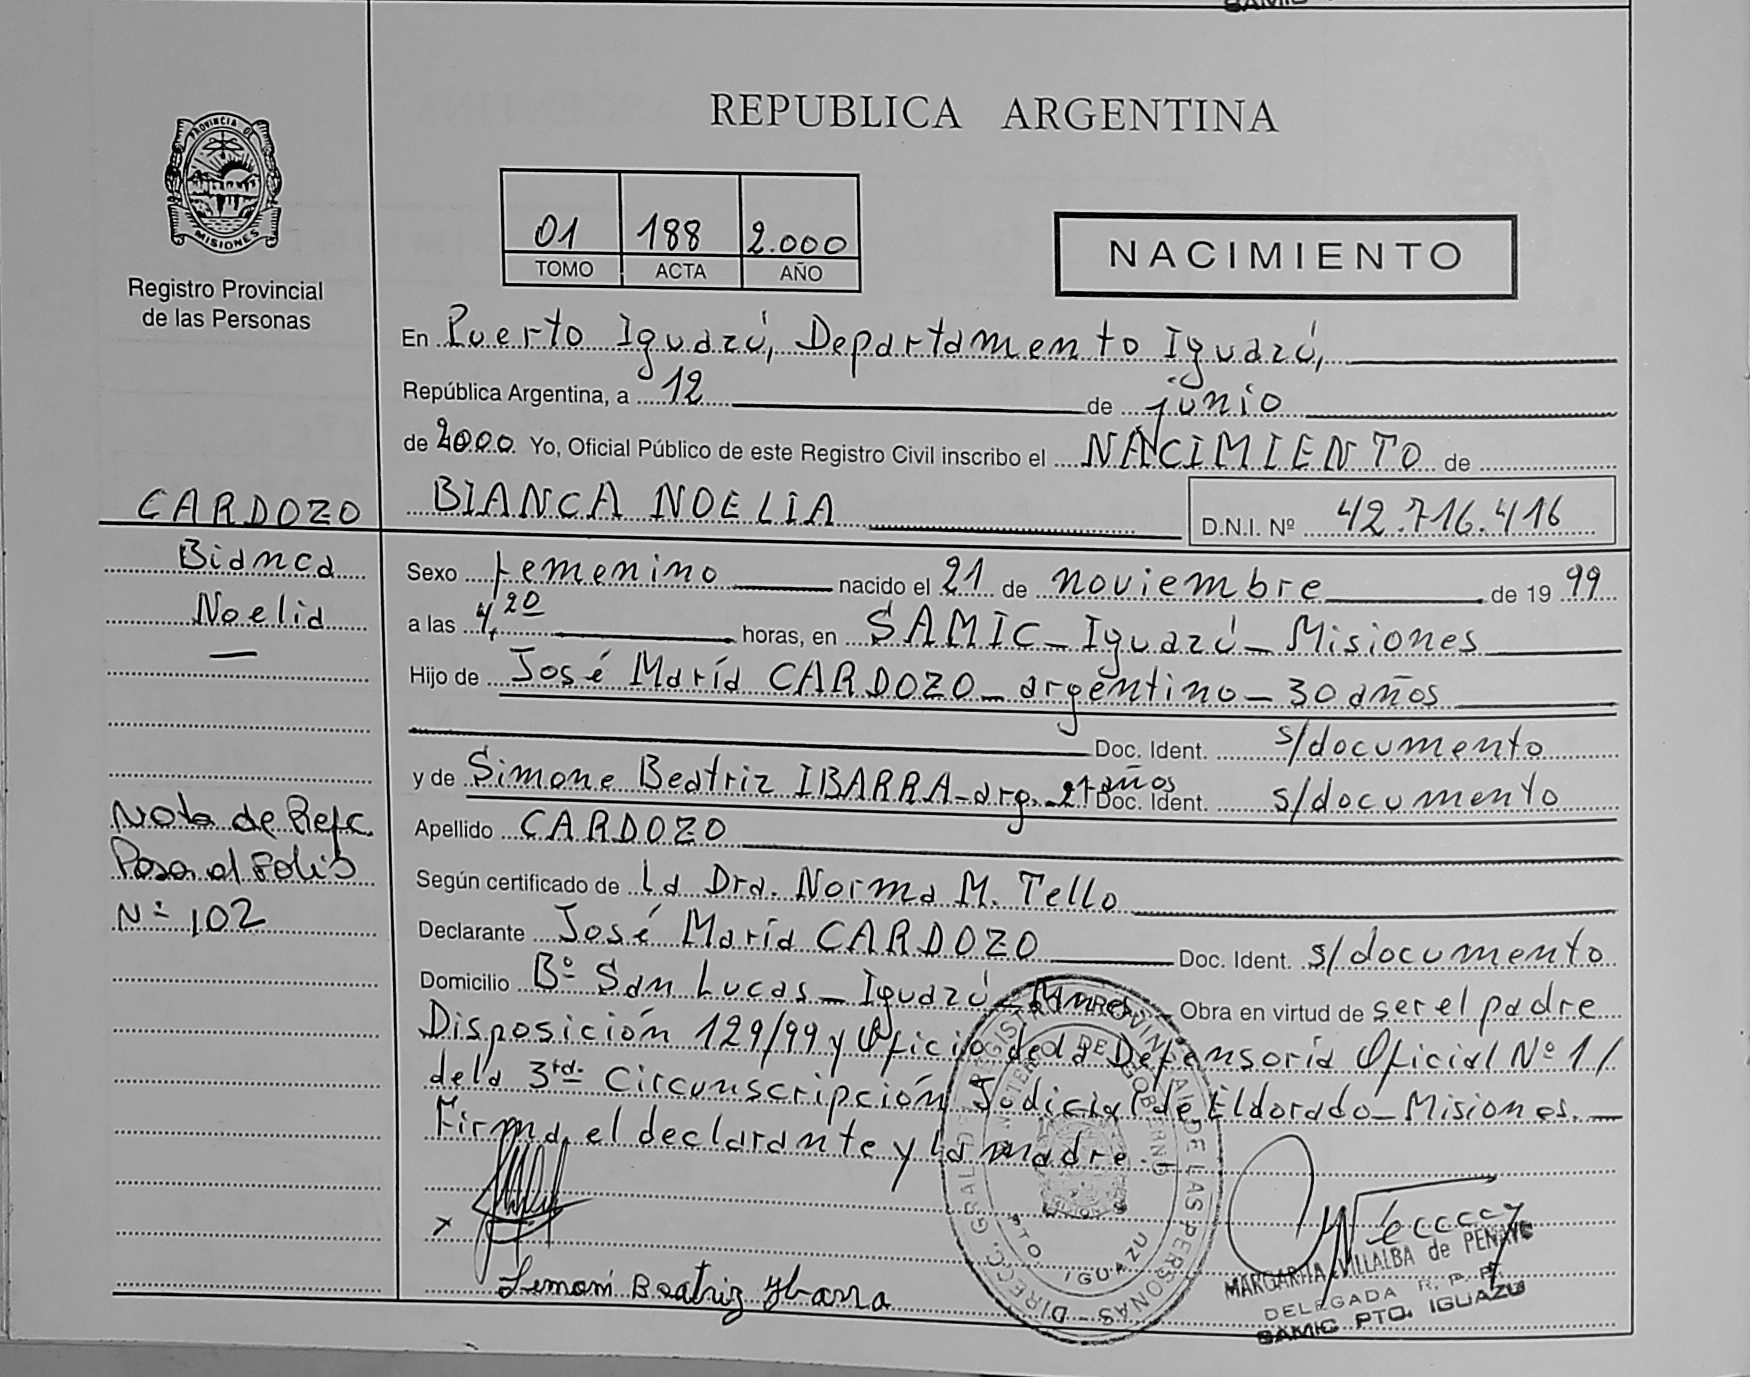 REPUBLICA ARGENTINA
PROVINCIA DE
MISIONES
Registro Provincial
de las Personas
01 188 2.000
TOMO ACTA AÑO
NACIMIENTO
En Puerto Iguazú, Departamento Iguazú,
República Argentina, a 12 de junio
de 2000. Yo, Oficial Público de este Registro Civil inscribo el NACIMIENTO de
CARDOZO BIANCA NOELIA D.N.I. Nº 42.716.416
Bianca
Noelia
—
Sexo femenino nacido el 21 de noviembre de 1999
a las 4,20 horas, en SAMIC_Iguazú_Misiones
Hijo de José María CARDOZO_argentino_30 años
Doc. Ident. s/documento
y de Simone Beatriz IBARRA_arg._21 años Doc. Ident. s/documento
Apellido CARDOZO
Según certificado de La Dra. Norma M. Tello
Declarante José María CARDOZO Doc. Ident. s/documento
Domicilio Bº San Lucas_Iguazú_ Obra en virtud de ser el padre
Disposición 129/99 y Oficio de la Defensoría Oficial Nº 1/
de la 3ra. Circunscripción Judicial de Eldorado_Misiones.
Firma el declarante y la madre.
Nota de Refc.
Pasa al Folio
Nº 102
x
Beatriz Ybarra
DIRECC. GRAL. DE REGISTRO PROVINCIAL DE LAS PERSONAS
MINISTERIO DE GOBIERNO
PTO IGUAZU
MARGARITA VILLALBA de PENAYO
DELEGADA R. P. P.
SAMIC PTO. IGUAZU